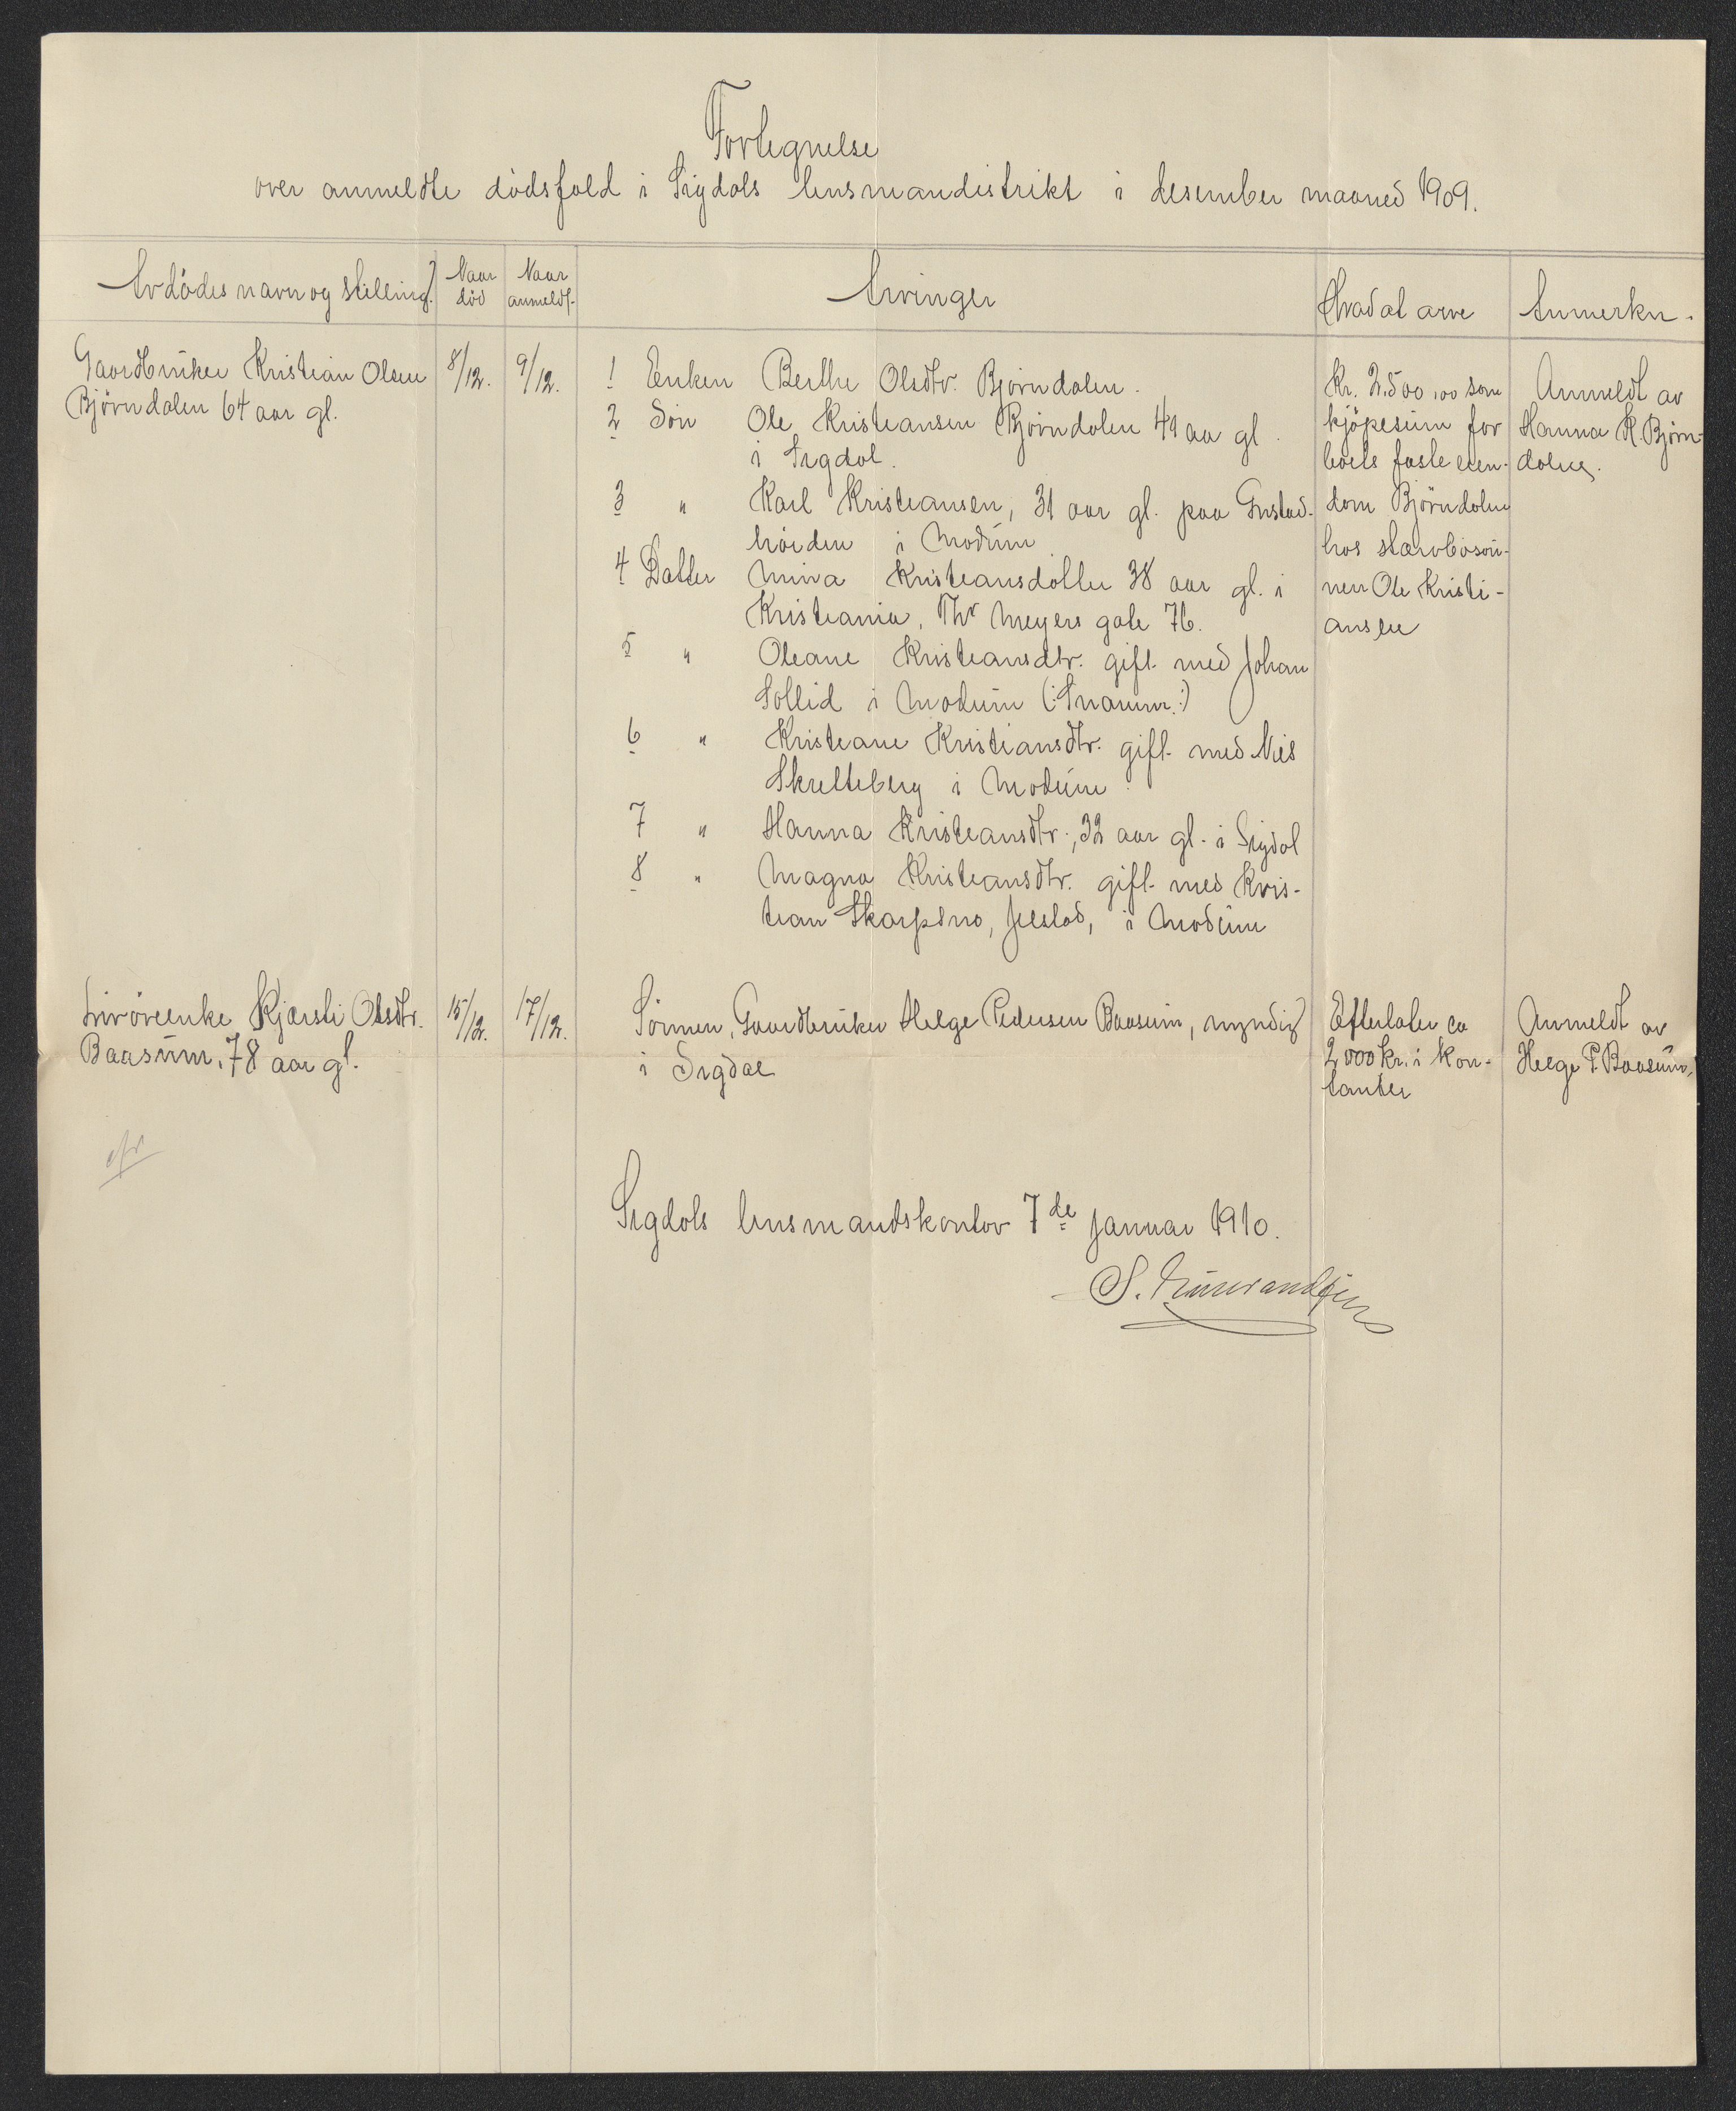 Fortegnelse
over anmeldte dødsfald i Sigdals lensmandistrikt i desember maaned 1909.
Avdødes navn og stilling. Naar død Naar anmeldt. Arvinger Hvad at arve Anmerkn.
Gaardbruker Kristian Olsen 8/12. 9/12.
Bjørndalen 64 aar gl.
1 Enken Berthe Olsdtr. Bjørndalen.
2 Søn Ole Kristiansen Bjørndalen 41 aar gl.
i Sigdal.
3 " Karl Kristiansen, 31 aar gl. paa Gustad-
høiden i Modum
4 Datter Mina Kristiansdatter 38 aar gl. i
Kristiania, Thv Meyers gate 76.
5 " Oleane Kristiansdtr. gift med Johan
Sollid i Modum (:Snarum:)
6 " Kristiane Kristiansdtr. gift med Nils
Skretteberg i Modum
7 " Hanna Kristiansdtr., 32 aar gl. i Sigdal
8 " Magna Kristiansdtr. gift med Kris-
tian Skarpsno, i Modum
Kr. 2,500,00 som
kjøpesum for
boets faste eien-
dom Bjørndalen
hos stervbosøn-
nen Ole Kristi-
ansen
Anmeldt av
Hanna K. Bjørn-
dalen.
Livøreenke Kjersti Olsdtr. 15/12. 17/12.
Baasum, 78 aar gl.
Sønnen, Gaardbruker Helge Pedersen Baasum, myndig
i Sigdal
Efterlater ca
2000 kr. i kon-
tanter
Anmeldt av
Helge P. Baasum,
Sigdals lensmandskontor 7de januar 1910.